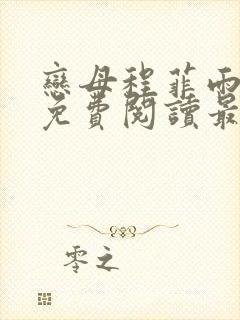 戀母程菲雨
免費閱讀最
零之